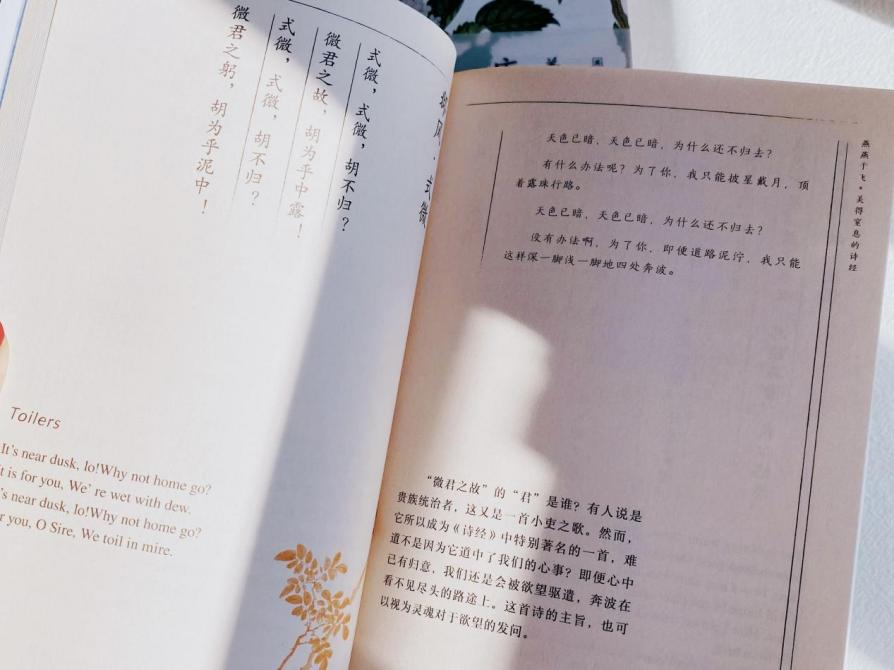 邶风·式微
式微，式微，胡不归？
微君之故，胡为乎中露！
式微，式微，胡不归？
微君之躬，胡为乎泥中！
Toilers
It's near dusk, lo!Why not home go?
t is for you, We' re wet with dew.
's near dusk, lo!Why not home go?
r you, O Sire, We toil in mire.
天色已暗，天色已暗，为什么还不归去？
有什么办法呢？为了你，我只能披星戴月，顶
着露珠行路。
天色已暗，天色已暗，为什么还不归去？
没有办法啊，为了你，即便道路泥泞，我只能
这样深一脚浅一脚地四处奔波。
“微君之故”的“君”是谁？有人说是
贵族统治者，这又是一首小吏之歌。然而，
它所以成为《诗经》中特别著名的一首，难
道不是因为它道中了我们的心事？即便心中
已有归意，我们还是会被欲望驱遣，奔波在
看不见尽头的路途上。这首诗的主旨，也可
以视为灵魂对于欲望的发问。
燕燕于飞·美得窒息的诗经